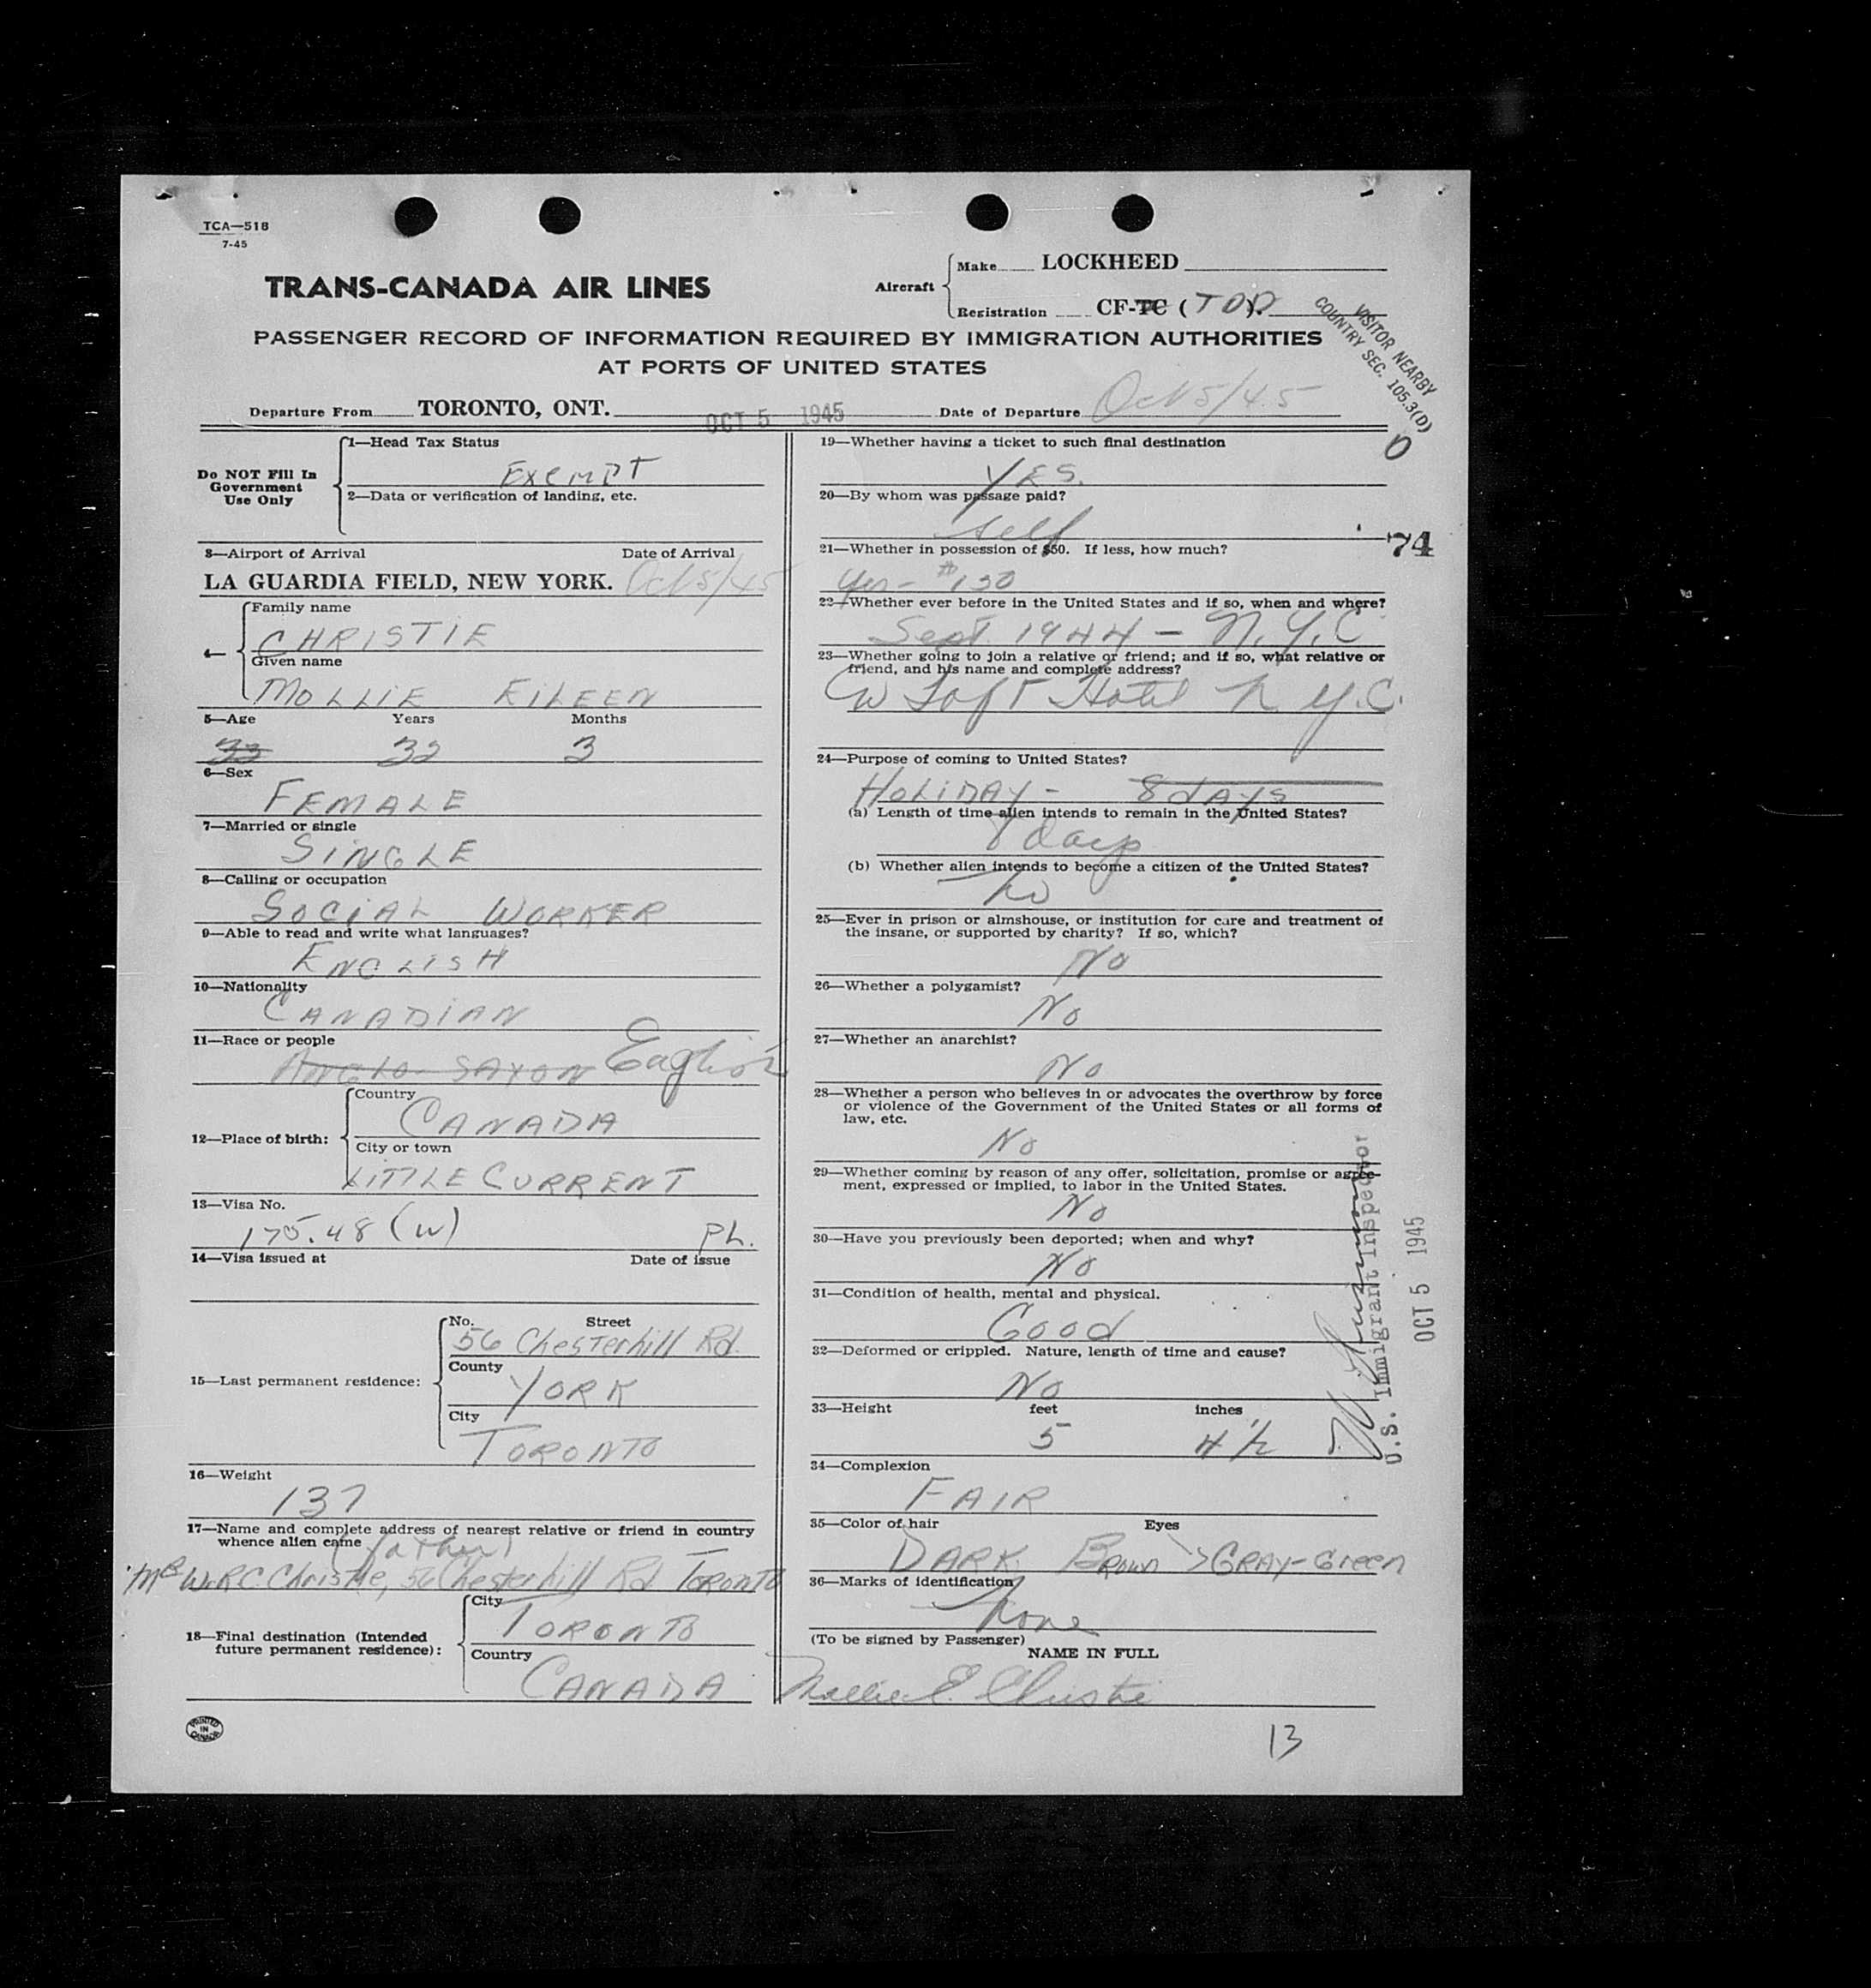 TCA—518
7-45
TRANS-CANADA AIR LINES
Aircraft
Make LOCKHEED
Registration CF-TC (TOD).
VISITOR NEARBY
COUNTRY SEC. 105.3(D)
PASSENGER RECORD OF INFORMATION REQUIRED BY IMMIGRATION AUTHORITIES
AT PORTS OF UNITED STATES
Departure From TORONTO, ONT. OCT 5 1945 Date of Departure Oct 5/45
Do NOT Fill In
Government
Use Only
1—Head Tax Status
EXEMPT
2—Data or verification of landing, etc.
3—Airport of Arrival Date of Arrival
LA GUARDIA FIELD, NEW YORK. Oct 5/45
4—
Family name
CHRISTIE
Given name
MOLLIE EILEEN
5—Age Years Months
33 32 3
6—Sex
FEMALE
7—Married or single
SINGLE
8—Calling or occupation
SOCIAL WORKER
9—Able to read and write what languages?
ENGLISH
10—Nationality
CANADIAN
11—Race or people
ANGLO-SAXON English
12—Place of birth:
Country
CANADA
City or town
LITTLE CURRENT
13—Visa No.
175.48 (W) PL.
14—Visa issued at Date of issue
15—Last permanent residence:
No. Street
56 Chesterhill Rd.
County
YORK
City
TORONTO
16—Weight
137
17—Name and complete address of nearest relative or friend in country
whence alien came
(father)
MR W.R.C Christie, 56 Chesterhill Rd TORONTO
18—Final destination (Intended
future permanent residence):
City
TORONTO
Country
CANADA
PRINTED
IN
CANADA
19—Whether having a ticket to such final destination
YES.
20—By whom was passage paid?
self
21—Whether in possession of $50. If less, how much?
74
Yes - $150
22—Whether ever before in the United States and if so, when and where?
Sept. 1944 - N.Y.C
23—Whether going to join a relative or friend; and if so, what relative or
friend, and his name and complete address?
Taft Hotel N.Y.C.
24—Purpose of coming to United States?
HOLIDAY - 8 DAYS
(a) Length of time alien intends to remain in the United States?
8 days
(b) Whether alien intends to become a citizen of the United States?
No
25—Ever in prison or almshouse, or institution for care and treatment of
the insane, or supported by charity? If so, which?
No
26—Whether a polygamist?
No
27—Whether an anarchist?
No
28—Whether a person who believes in or advocates the overthrow by force
or violence of the Government of the United States or all forms of
law, etc.
No
29—Whether coming by reason of any offer, solicitation, promise or agree-
ment, expressed or implied, to labor in the United States.
No
30—Have you previously been deported; when and why?
No
31—Condition of health, mental and physical.
Good
32—Deformed or crippled. Nature, length of time and cause?
No
33—Height feet inches
5 4½
34—Complexion
FAIR
35—Color of hair Eyes
DARK BROWN GRAY-Green
36—Marks of identification
None
(To be signed by Passenger)
NAME IN FULL
Mollie E. Christie
U.S. Immigrant Inspector
OCT 5 1945
13